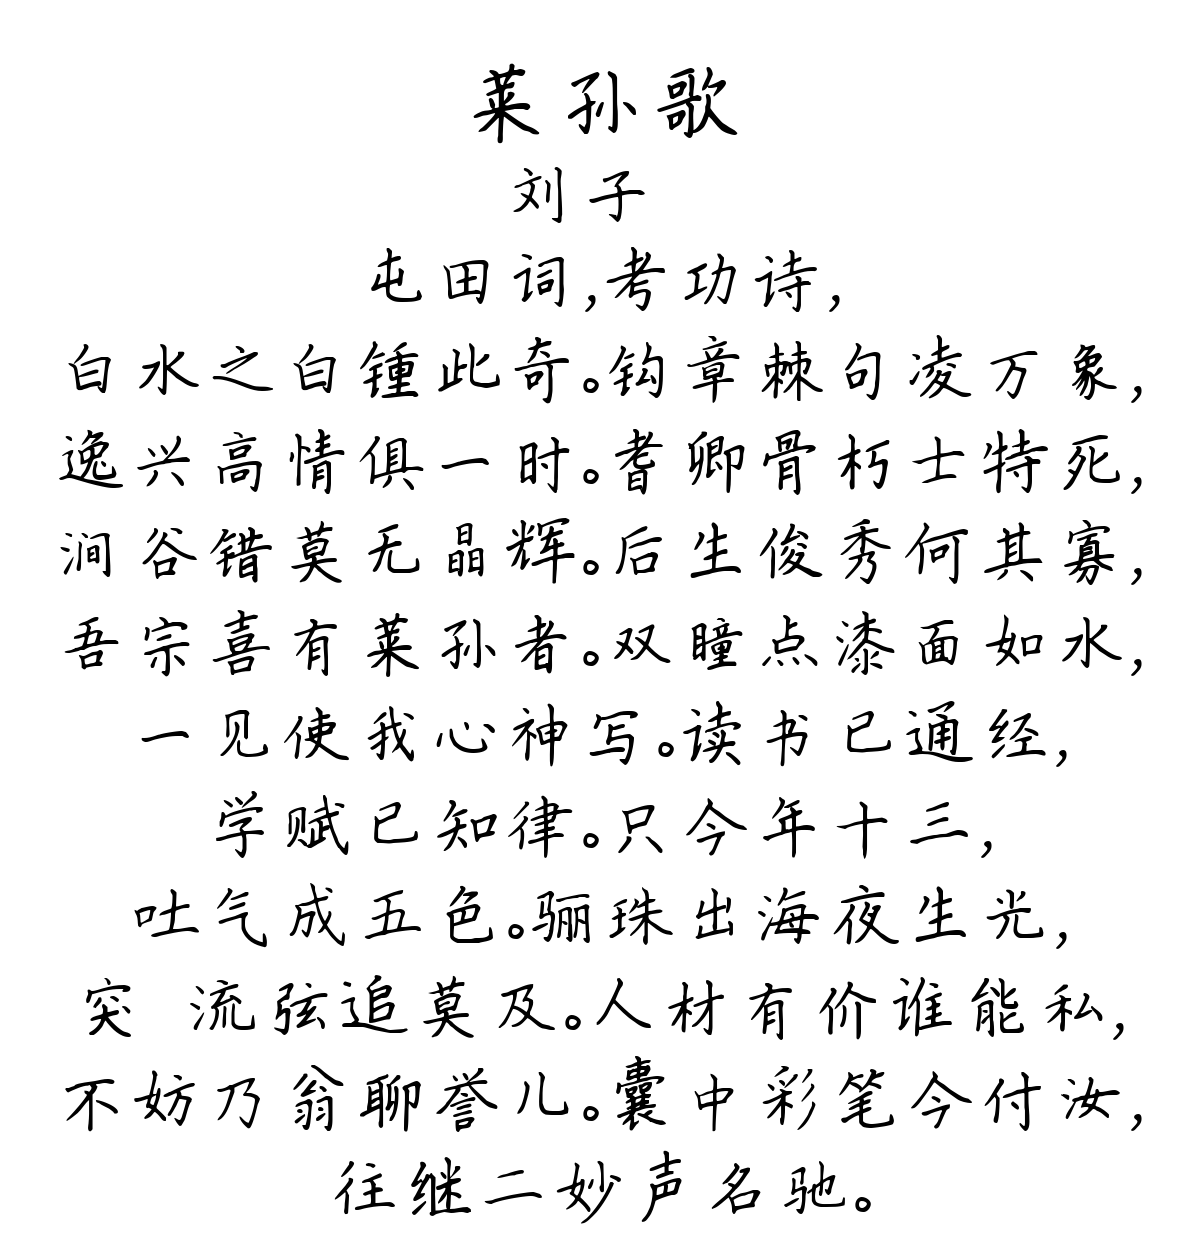 莱孙歌
刘子
屯田词,考功诗,
白水之白锺此奇。钩章棘句凌万象,
逸兴高情俱一时。耆卿骨朽士特死,
涧谷错莫无晶辉。后生俊秀何其寡,
吾宗喜有莱孙者。双瞳点漆面如水,
一见使我心神写。读书已通经,
学赋已知律。只今年十三,
吐气成五色。骊珠出海夜生光,
突 流弦追莫及。人材有价谁能私,
不妨乃翁聊誉儿。囊中彩笔今付汝,
往继二妙声名驰。